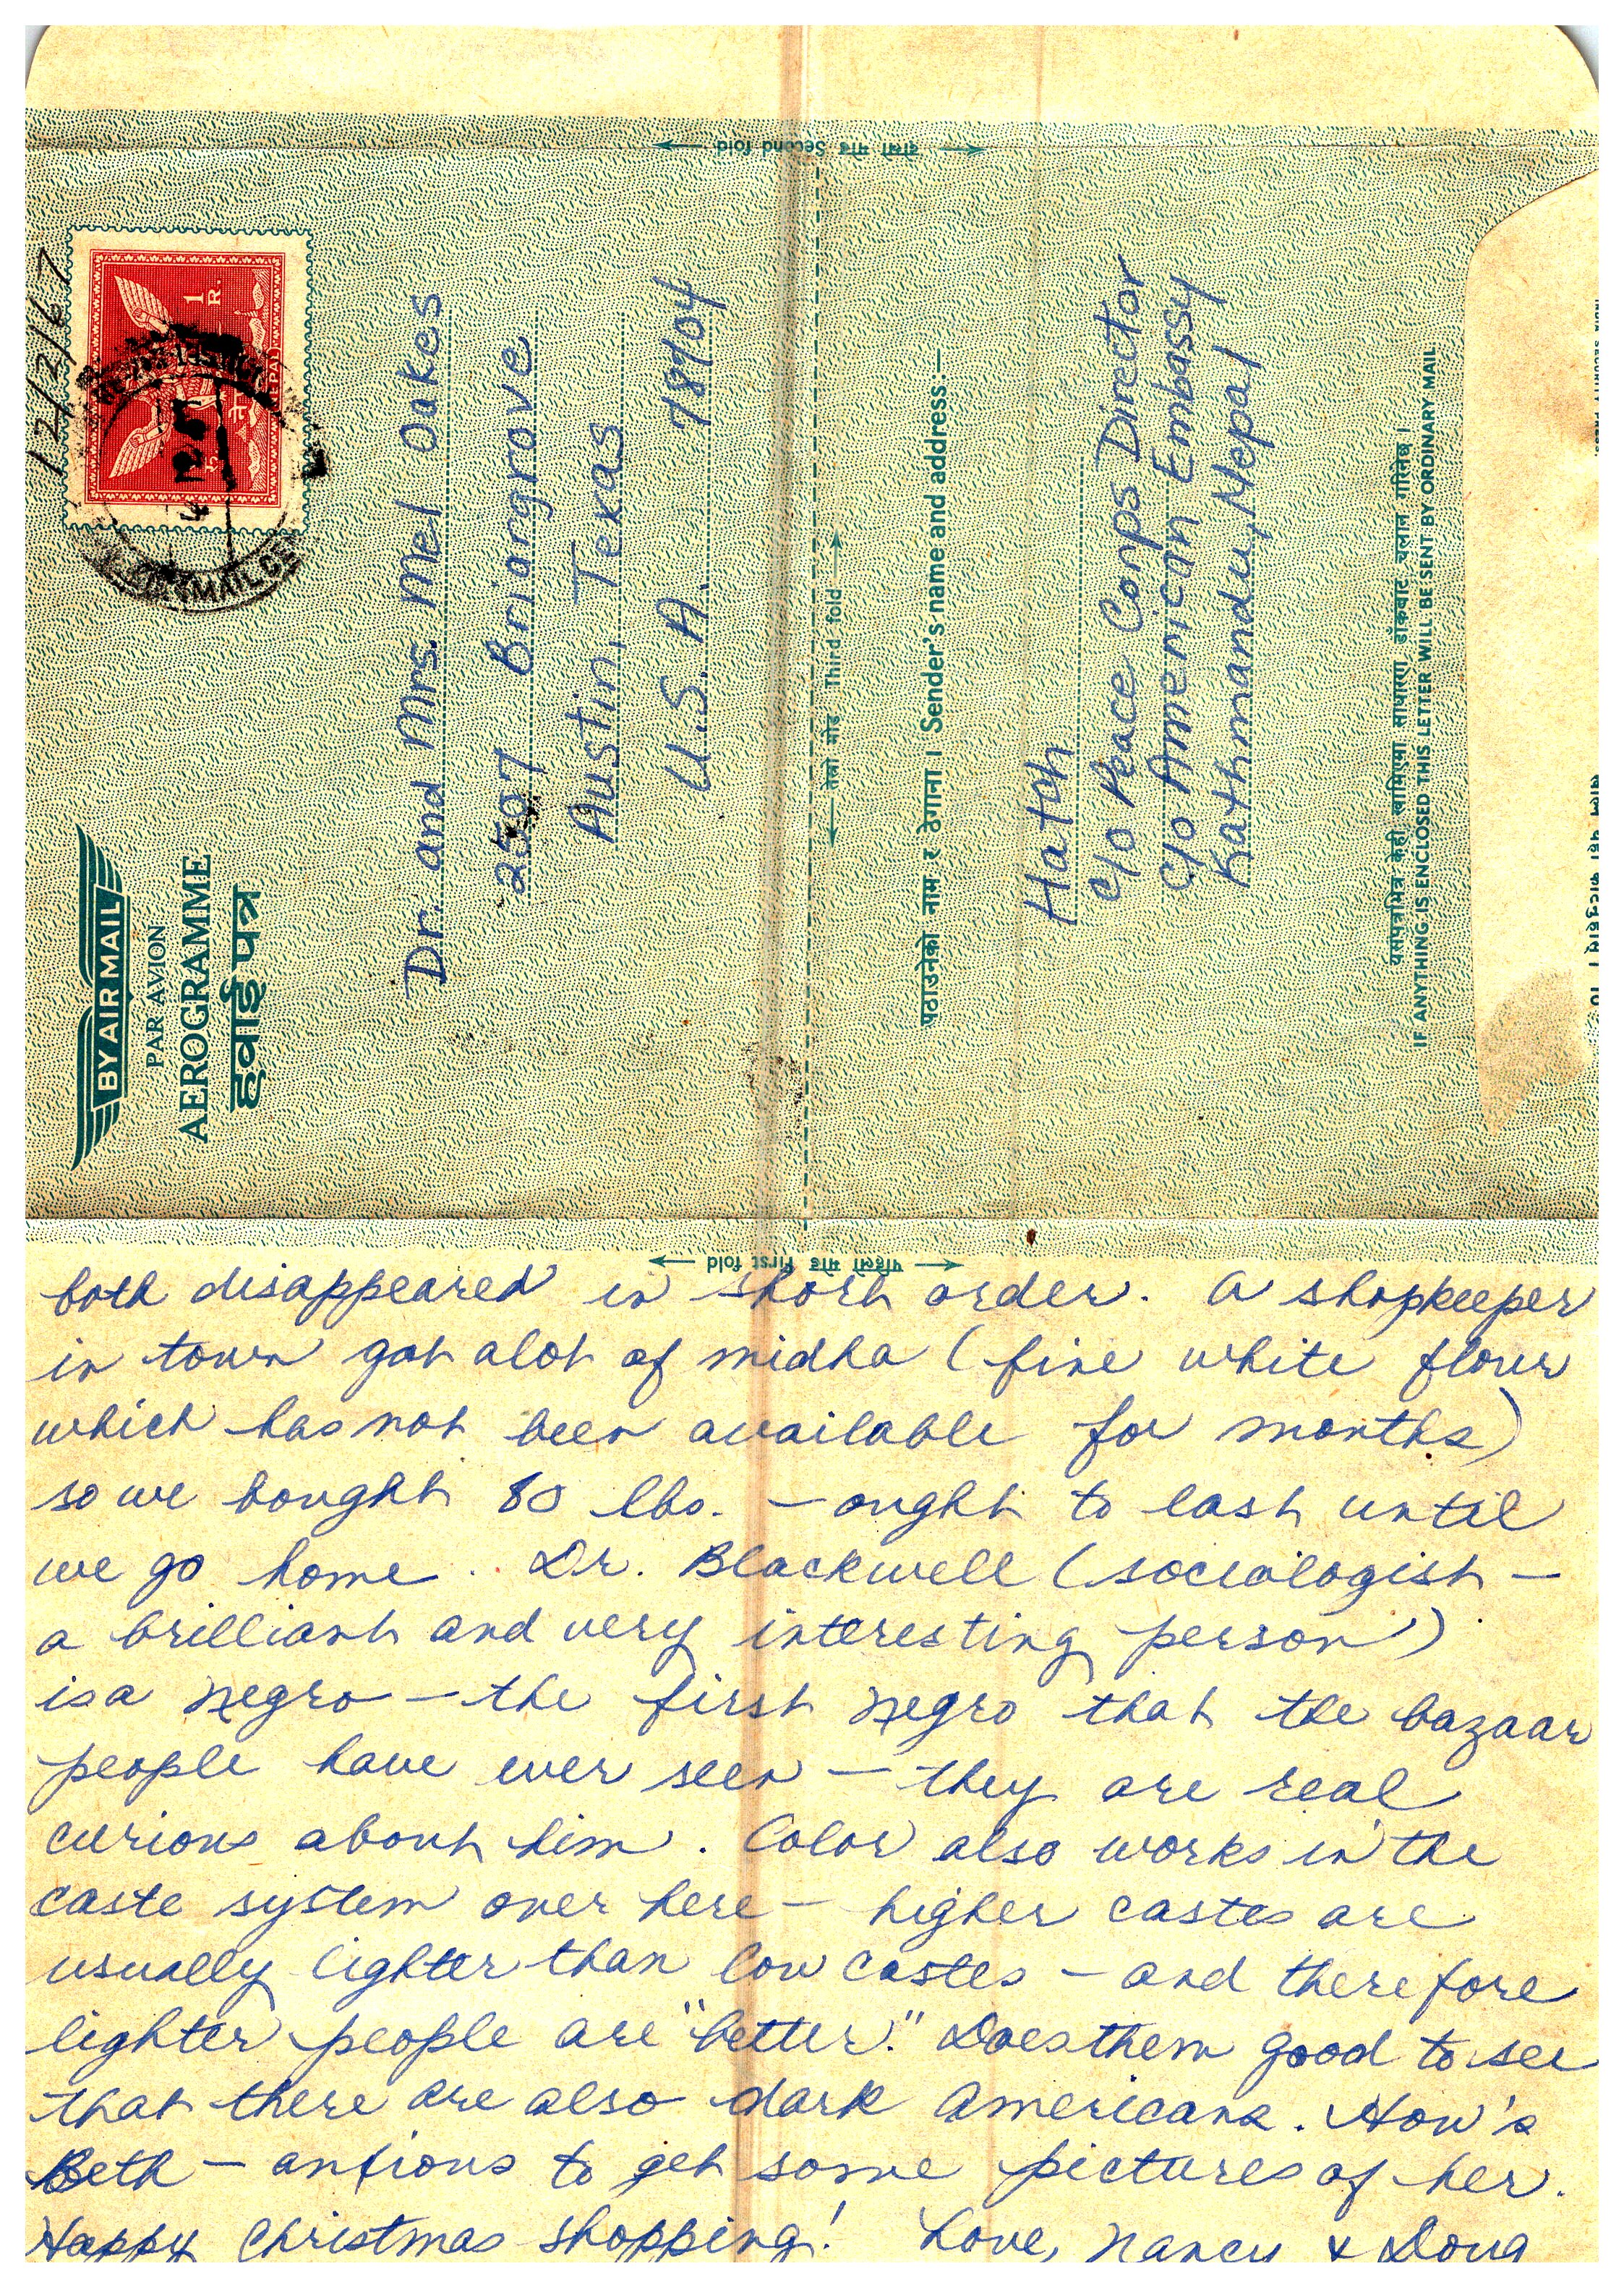 दोस्रो मोड Second fold
12/2/67
1 R.
NEPAL
BY AIR MAIL
PAR AVION
AEROGRAMME
हवाई पत्र
Dr. and Mrs. Mel Oakes
2507 Briargrove
Austin, Texas
U.S.A. 78704
तेस्रो मोड Third fold
पठाउनेको नाम र ठेगाना । Sender's name and address:—
Hatch
c/o Peace Corps Director
c/o American Embassy
Kathmandu, Nepal
यसपत्रभित्र केही खामिएमा साधारण डाँकबाट चलान गरिनेछ ।
IF ANYTHING IS ENCLOSED THIS LETTER WILL BE SENT BY ORDINARY MAIL
पहिलो मोड First fold
both disappeared in short order. A shopkeeper
in town got alot of midha (fine white flour
which has not been available for months)
so we bought 80 lbs. – ought to last until
we go home. Dr. Blackwell (sociologist –
a brilliant and very interesting person)
is a negro – the first negro that the bazaar
people have ever seen – they are real
curious about him. Color also works in the
caste system over here – higher castes are
usually lighter than low castes – and therefore
lighter people are "better." Does them good to see
that there are also dark Americans. How's
Beth – anxious to get some pictures of her.
Happy Christmas shopping! Love, Nancy & Doug